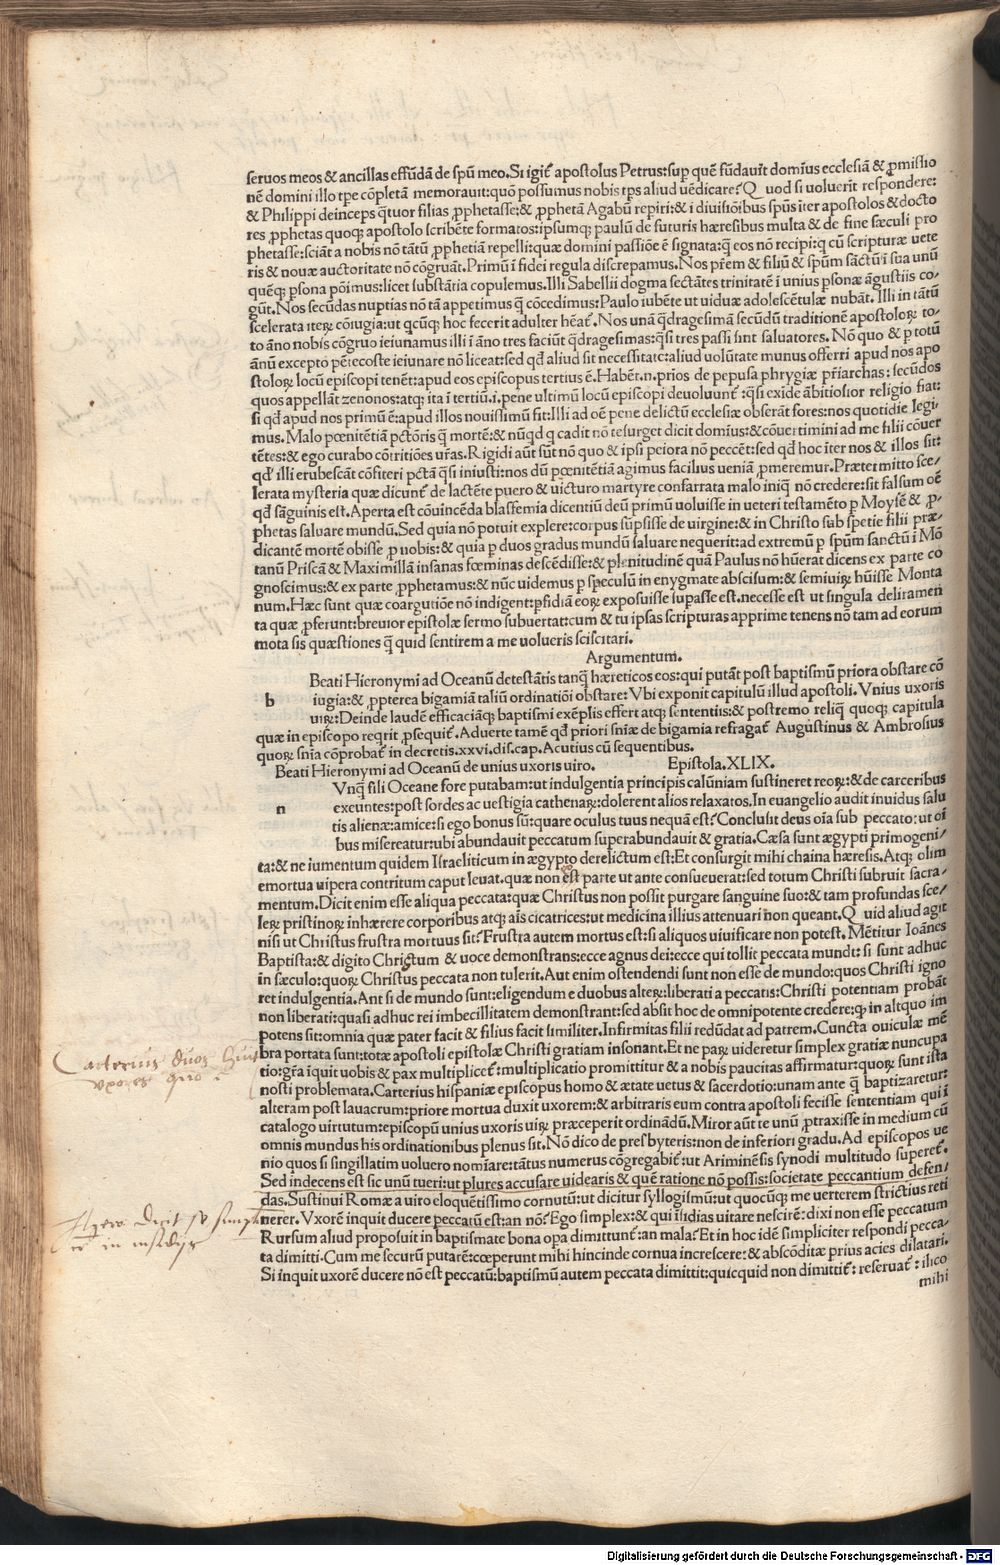 seruos meos & ancillas effũdã de spũ meo. Si igiť apostolus Petrus: sup quẽ fũdauit domĩus ecclesiã & ꝓmissio
nẽ domini illo tpe cõpletã memorauit: quõ possumus nobis tps aliud uẽdicare? Q uod si uoluerit respondere:
& Philippi deinceps q̃tuor filias ꝓphetasse: & ꝓphetã Agabũ repiri: & i diuisiõibus spũs iter apostolos & docto
res ꝓphetas quoq; apostolo scribẽte formatos: ipsumq; paulũ de futuris hæresibus multa & de fine sæculi pro
phetasse: sciãt a nobis nõ tãtũ ꝓphetiã repelli: quæ domini passiõe ẽ signata: q̃ eos nõ recipi: q cũ scripturæ uete
ris & nouæ auctoritate nõ cõgruãt. Primũ ĩ fidei regula discrepamus. Nos pr̃em & filiũ & spũm sãctũ ĩ sua unũ
quẽq; psona põimus: licet substãtia copulemus. Illi Sabellii dogma sectãtes trinitatẽ ĩ unius psonæ ãgustiis co-
gũt. Nos secũdas nuptias nõ tã appetimus q̃ cõcedimus: Paulo iubẽte ut uiduæ adolescẽtulæ nubãt. Illi in tãtũ
scelerata iteꝝ cõiugia: ut qcũq; hoc fecerit adulter hẽať. Nos unã q̃dragesimã secũdũ traditionẽ apostoloꝝ to-
to ãno nobis cõgruo ieiunamus illi i ãno tres faciũt q̃dragesimas: q̃si tres passi sint saluatores. Nõ quo & p totũ
ãnũ excepto pẽtecoste ieiunare nõ liceat: sed qđ aliud sit necessitate: aliud uolũtate munus offerri apud nos apo
stoloꝝ locũ episcopi tenẽt: apud eos episcopus tertius ẽ. Habẽt .n. prios de pepusa phrygiæ pr̃iarchas: secũdos
quos appellãt zenonos: atq; ita ĩ tertiũ .i. pene ultimũ locũ episcopi deuoluunť: q̃si exide ãbitiosior religio fiat:
si qđ apud nos primũ ẽ: apud illos nouissimũ sit: Illi ad oẽ pene delictũ ecclesiæ obserãt fores: nos quotidie legi-
mus. Malo pœnitẽtiã pctõris q̃ mortẽ: & nũqd q cadit nõ resurget dicit domĩus: & cõuertimini ad me filii cõuer
tẽtes: & ego curabo cõtritiões ur̃as. Rigidi aũt sũt nõ quo & ipsi peiora nõ peccẽt: sed qđ hoc iter nos & illos sit:
qđ illi erubescãt cõfiteri pctã q̃si iniusti: nos dũ pœnitẽtiã agimus facilius ueniã ꝓmeremur. Prætermitto sce-
lerata mysteria quæ dicunť de lactẽte puero & uicturo martyre confarrata malo iniq̃ nõ credere: sit falsum oẽ
qđ sãguinis est. Aperta est cõuincẽda blasfemia dicentiũ deũ primũ uoluisse in ueteri testamẽto p Moysẽ & ꝓ-
phetas saluare mundũ. Sed quia nõ potuit explere: corpus sũpsisse de uirgine: & in Christo sub spetie filii præ-
dicantẽ mortẽ obisse ꝓ nobis: & quia p duos gradus mundũ saluare nequerit: ad extremũ p spũm sanctũ i Mõ
tanũ Priscã & Maximillã insanas fœminas descẽdisse: & plenitudinẽ quã Paulus nõ hũerat dicens ex parte co
gnoscimus: & ex parte ꝓphetamus: & nũc uidemus p speculũ in enygmate abscisum: & semiuiꝝ hũisse Monta
num. Hæc sunt quæ coargutiõe nõ indigent: pfidiã eoꝝ exposuisse supasse est. necesse est ut singula deliramen
ta quæ ꝓferunt: breuior epistolæ sermo subuertat: cum & tu ipsas scripturas apprime tenens nõ tam ad eorum
mota sis quæstiones q̃ quid sentirem a me uolueris sciscitari.
Argumentum.
Beati Hieronymi ad Oceanũ detestãtis tanq̃ hæreticos eos: qui putãt post baptismũ priora obstare cõ
b iugia: & ꝓpterea bigamiã taliũ ordinatiõi obstare: Vbi exponit capitulũ illud apostoli. Vnius uxoris
uiꝝ: Deinde laudẽ efficaciãq; baptismi exẽplis effert atq; sententiis: & postremo reliq̃ quoq; capitula
quæ in episcopo reqrit ꝓsequiť. Aduerte tamẽ qđ priori sniæ de bigamia refragať Augustinus & Ambrosius
quoꝝ snia cõprobať in decretis. xxvi. dis. cap. Acutius cũ sequentibus.
Beati Hieronymi ad Oceanũ de unius uxoris uiro. Epistola. XLIX.
Vnq̃ fili Oceane fore putabam: ut indulgentia principis calũniam sustineret reoꝝ: & de carceribus
n exeuntes: post sordes ac uestigia cathenaꝝ: dolerent alios relaxatos. In euangelio audit inuidus salu
tis alienæ: amice: si ego bonus sũ: quare oculus tuus nequã est? Conclusit deus oĩa sub peccato: ut oĩ
bus misereatur: ubi abundauit peccatum superabundauit & gratia. Cæsa sunt ægypti primogeni-
ta: & ne iumentum quidem Israeliticum in ægypto derelictum est: Et consurgit mihi chaina hæresis. Atq; olim
emortua uipera contritum caput leuat. quæ non est parte ut ante consueuerat: sed totum Christi subruit sacra-
mentum. Dicit enim esse aliqua peccata: quæ Christus non possit purgare sanguine suo: & tam profundas sce-
leꝝ pristinoꝝ inhærere corporibus atq; aĩs cicatrices: ut medicina illius attenuari non queant. Q uid aliud agit
nisi ut Christus frustra mortuus sit? Frustra autem mortus est: si aliquos uiuificare non potest. Mẽtitur Ioãnes
Baptista: & digito Christum & uoce demonstrans: ecce agnus dei: ecce qui tollit peccata mundi: si sunt adhuc
in sæculo: quoꝝ Christus peccata non tulerit. Aut enim ostendendi sunt non esse de mundo: quos Christi igno
ret indulgentia. Ant si de mundo sunt: eligendum e duobus alteꝝ: liberati a peccatis: Christi potentiam probãt
non liberati: quasi adhuc rei imbecillitatem demonstrant: sed absit hoc de omnipotente credere: q; in altquo im
potens sit: omnia quæ pater facit & filius facit similiter. Infirmitas filii redũdat ad patrem. Cuncta ouiculæ mẽ
bra portata sunt: totæ apostoli epistolæ Christi gratiam insonant. Et ne paꝝ uideretur simplex gratiæ nuncupa
tio: gr̃a iquit uobis & pax multipliceť: multiplicatio promittitur & a nobis paucitas affirmatur: quoꝝ sunt ista
nosti problemata. Carterius hispaniæ episcopus homo & ætate uetus & sacerdotio: unam ante q̃ baptizaretur:
alteram post lauacrum: priore mortua duxit uxorem: & arbitraris eum contra apostoli fecisse sententiam qui ĩ
catalogo uirtutum: episcopũ unius uxoris uiꝝ præceperit ordinãdũ. Miror aũt te unũ ꝓtraxisse in medium cũ
omnis mundus his ordinationibus plenus sit. Nõ dico de presbyteris: non de inferiori gradu. Ad episcopos ue
nio quos si singillatim uoluero nomĩare: tãtus numerus cõgregabiť: ut Ariminẽsis synodi multitudo supereť.
Sed indecens est sic unũ tueri: ut plures accusare uidearis & quẽ ratione nõ possis: societate peccantium defen-
das. Sustinui Romæ a uiro eloquẽtissimo cornutũ: ut dicitur syllogismũ: ut quocũq; me uerterem strictius reti
nerer. Vxorẽ inquit ducere peccatũ est: an nõ? Ego simplex: & qui ĩsidias uitare nescirẽ: dixi non esse peccatum
Rursum aliud proposuit in baptismate bona opa dimittunť: an mala? Et in hoc idẽ simpliciter respondi pecca-
ta dimitti. Cum me securũ putarẽ: cœperunt mihi hincinde cornua increscere: & abscõditæ prius acies dilatari.
Si inquit uxorẽ ducere nõ est peccatũ: baptismũ autem peccata dimittit: quicquid non dimittiť: reseruať: ilico
mihi
Carterius duos
uxores
dicit se simpl
Digitalisierung gefördert durch die Deutsche Forschungsgemeinschaft - DFG